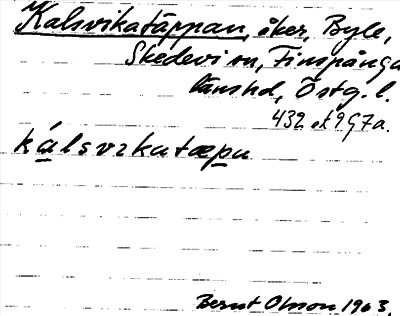 Kalsvikatäppan, åker, Byle,
Skedevi sn, Finspånga
länshd, Östg. l.
432 et 997a.
kalsvikatæpa
Bernt Olsson 1963.